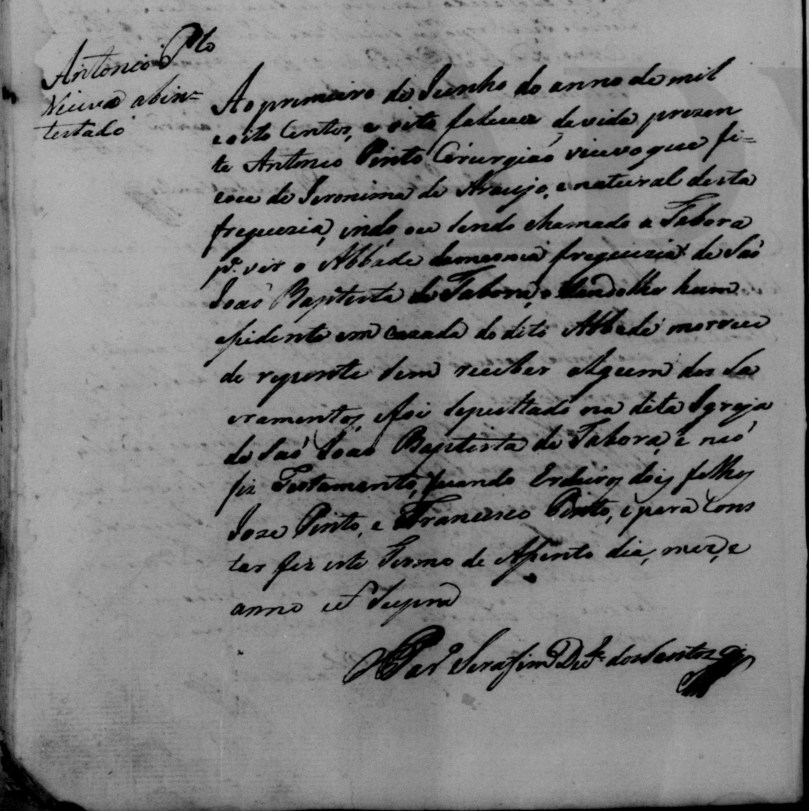 Antonio Pto
Viuvo abin-
testado
Ao primeiro de Junho do anno de mil
e oito Centos, e oito faleceu da vida prezen
te Antonio Pinto Cirurgiaõ viuvo que fi-
cou de Jeronima de Araujo, e natural desta
freguezia, indo ou sendo chamado a Tabora
pa. ver o Abbade da mesma freguezia de Saõ
Joaõ Baptista de Tabora e dandolhe hum
assidente em caza do dito Abbade morreu
de repente sem receber algum dos Sa
cramentos, e foi sepultado na dita Igreja
de Saõ Joaõ Baptista de Tabora, e naõ
fez Testamento, ficando Erdeiros dois filhos
Joze Pinto, e Francisco Pinto, e para cons
tar fiz este Termo de Assento dia, mez, e
anno ut Supra
O Par.o Serafim dos Santos